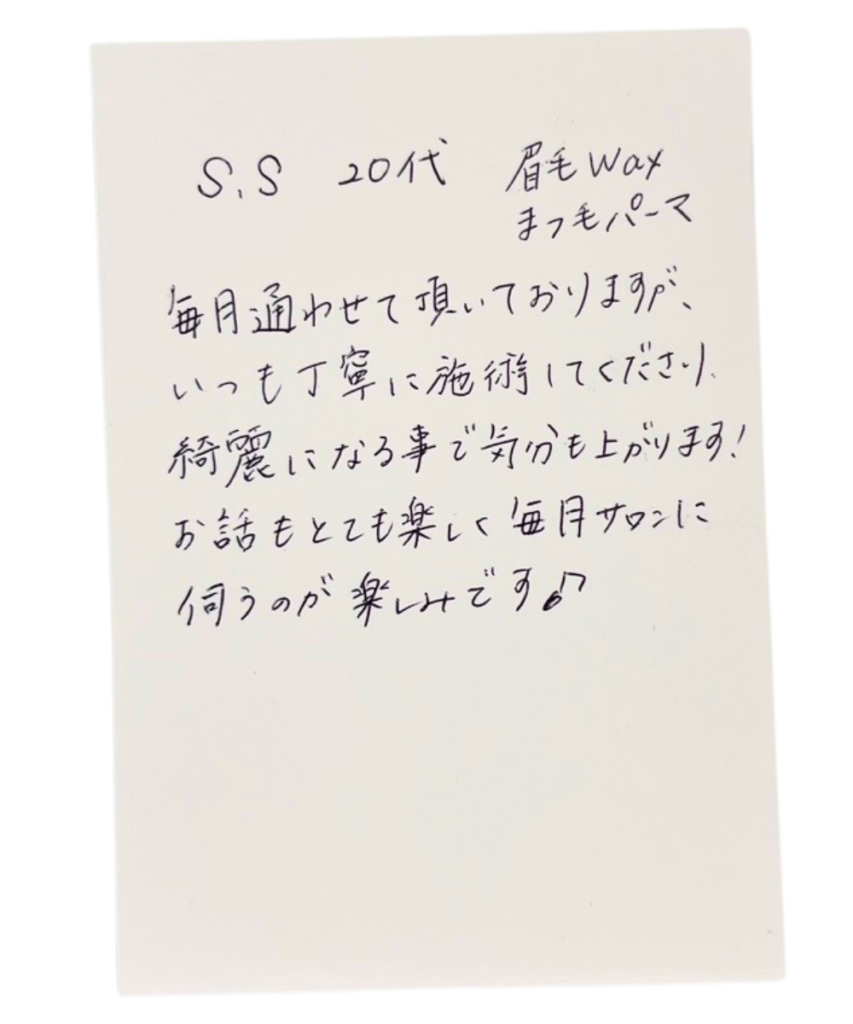 S.S 20代 眉毛wax
まつ毛パーマ
毎月通わせて頂いておりますが、
いつも丁寧に施術してくださり、
綺麗になる事で気分も上がります!
お話もとても楽しく毎月サロンに
伺うのが楽しみです♪